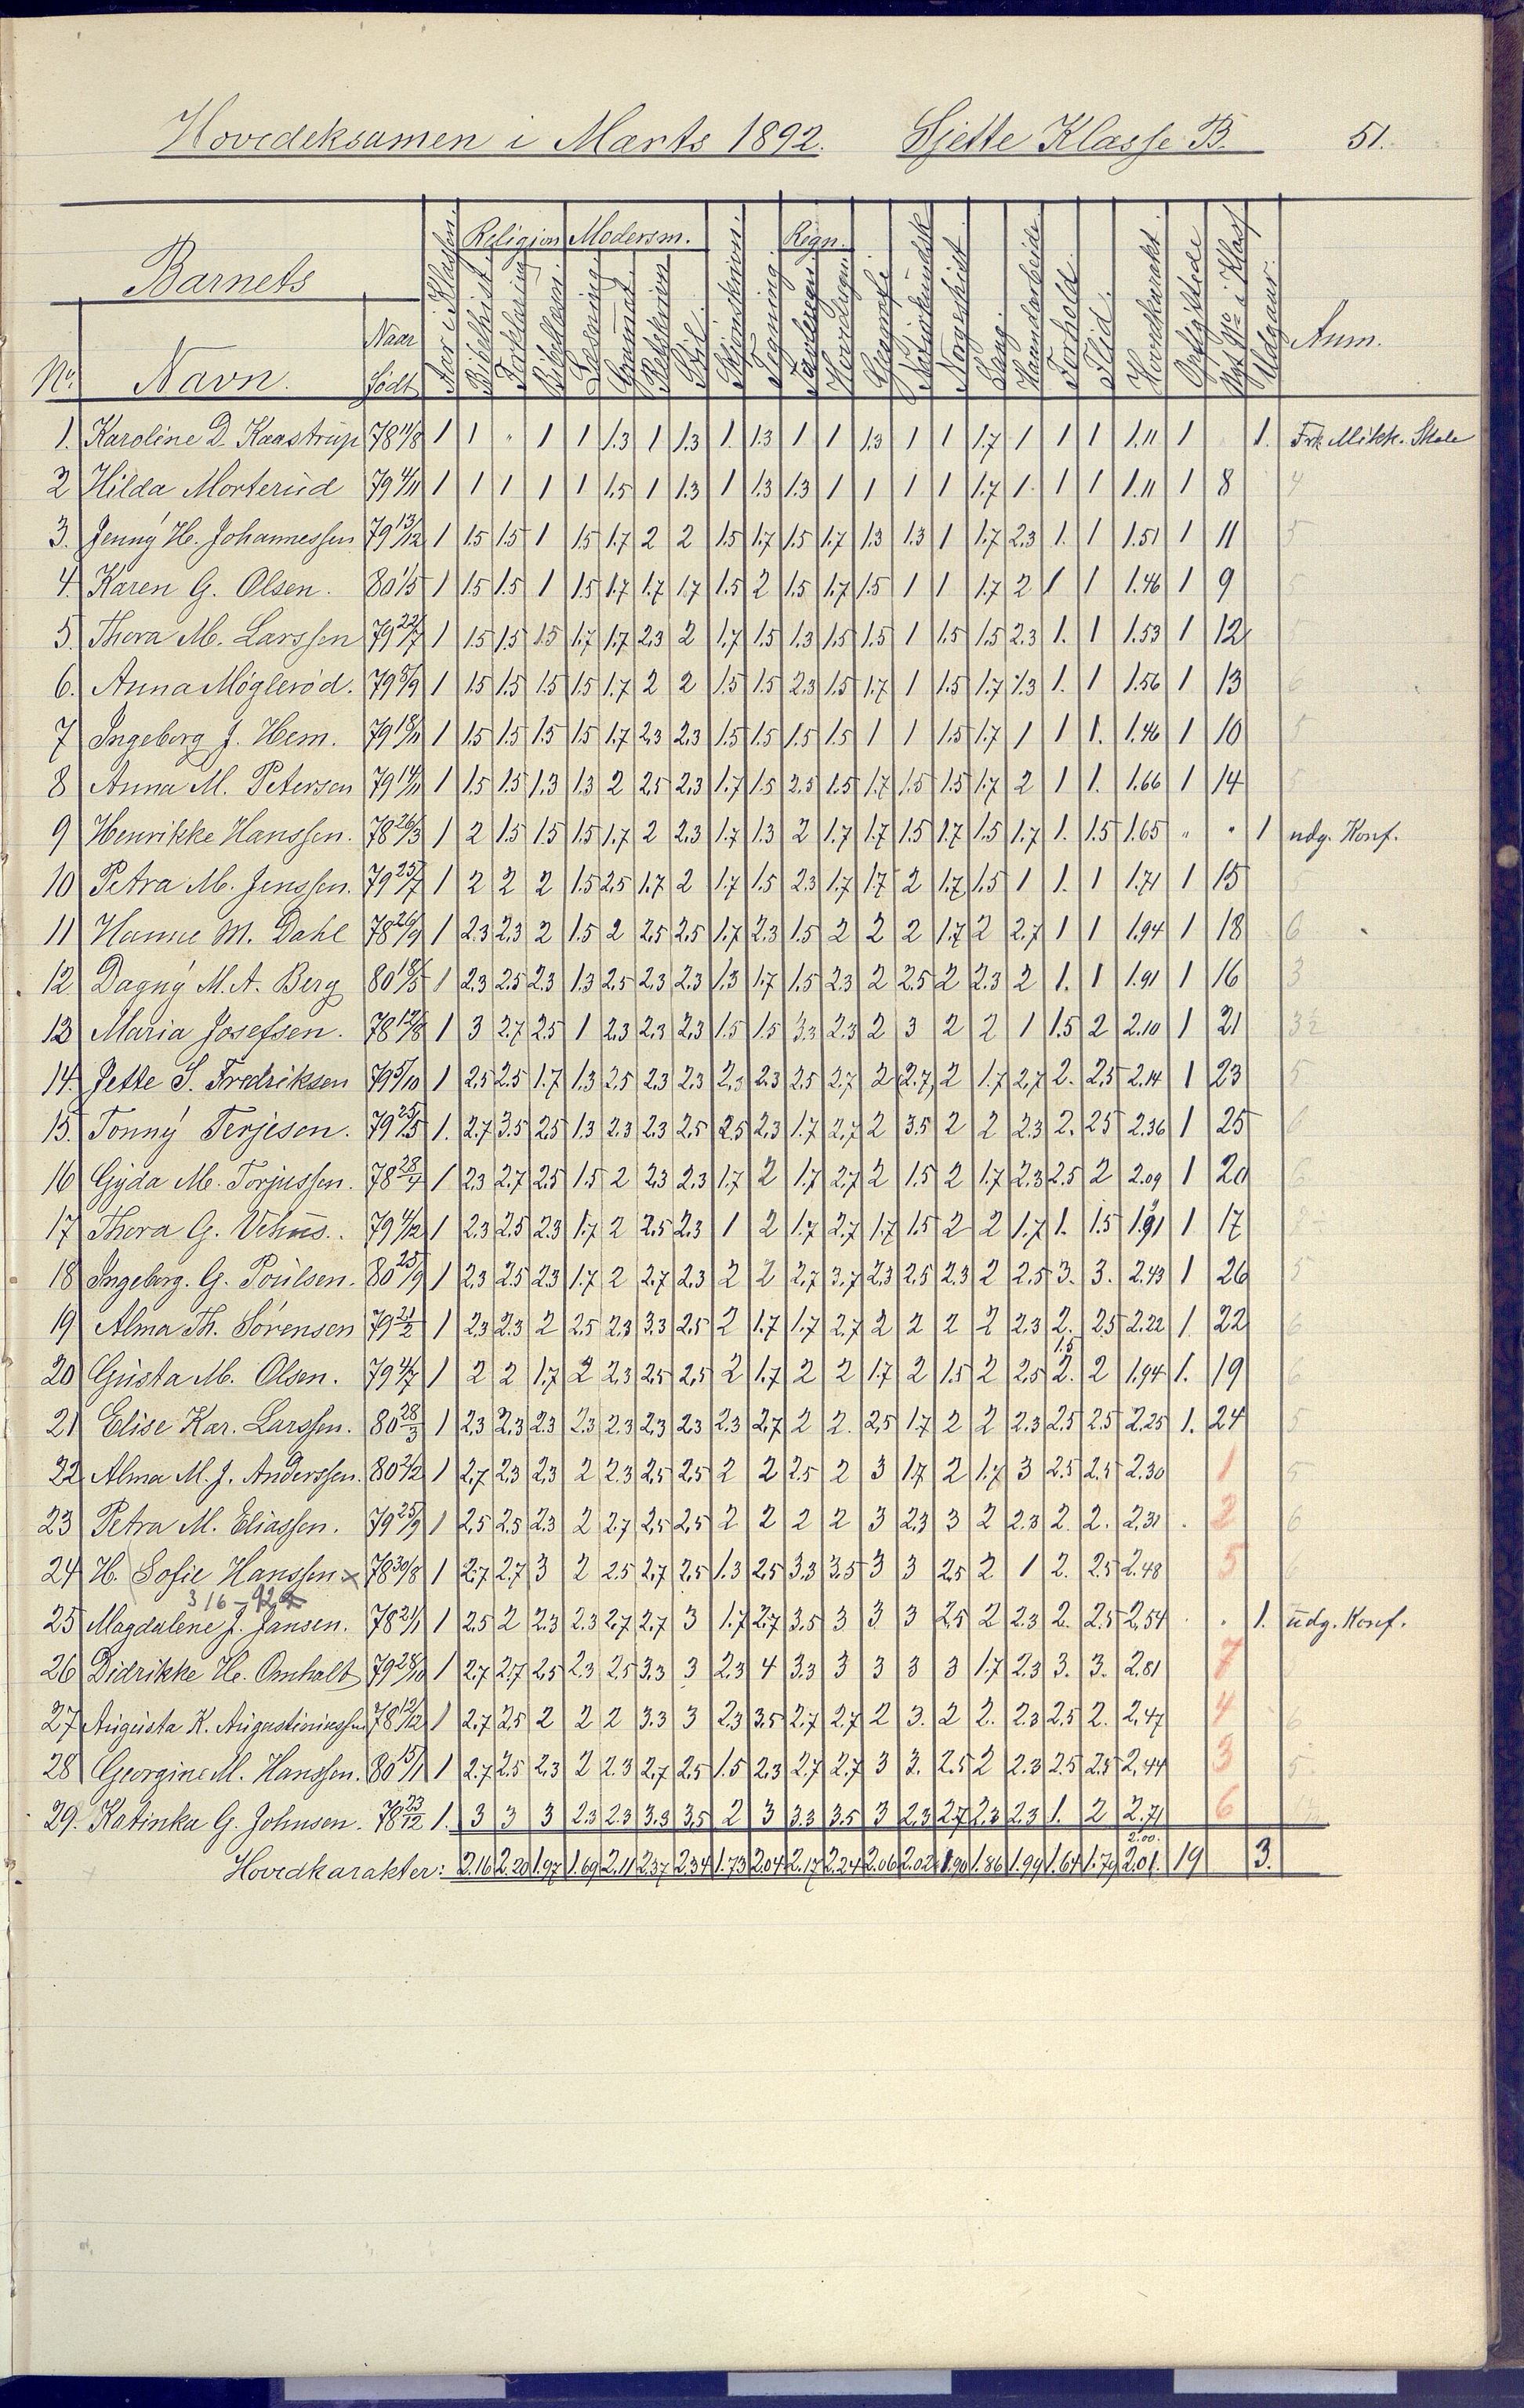 Hovedeksamen i Marts 1892. Sjette Klasse B. 51.
Barnets
Religion Modersm. Regn.
No. Navn. Naar Født Aar i Klassen. Bibelhist. Forklaring Bibellæsn. Læsning Grammat. Retskrivn Stil. Skjönskrivn. Tegning. Tavleregn. Hovedregn. Geografi. Naturkundsk Norgeshist. Sang. Haandarbeide Forhold. Flid. Hovedkarakt. Opflyttede Nyt No i Klas. Udgaar. Anm.
1. Karoline D. Kaastrup 78 11/8 1 1 " 1 1 1.3 1 1.3 1. 1.3 1 1 1.3 1 1 1.7 1 1 1 1.11 1 1. Frk. Mikk. Skole
2 Hilda Morterud 79 4/11 1 1 1 1 1 1.5 1 1.3 1 1.3 1.3 1 1 1 1 1.7 1. 1 1 1.11 1 8 4
3. Jenny H. Johannessen 79 13/12 1 1.5 1.5 1 1.5 1.7 2 2 1.5 1.7 1.5 1.7 1.3 1.3 1 1.7 2.3 1. 1 1.51 1 11 5
4. Karen G. Olsen. 80 1/5 1 1.5 1.5 1 1.5 1.7 1.7 1.7 1.5 2 1.5 1.7 1.5 1 1 1.7 2 1 1 1.46 1 9 5
5. Thora M. Larssen 79 22/7 1 1.5 1.5 1.5 1.7 1.7 2.3 2 1.7 1.5 1.3 1.5 1.5 1 1.5 1.5 2.3 1. 1 1.53 1 12 5
6. Anna Mögleröd. 79 5/9 1 1.5 1.5 1.5 1.5 1.7 2 2 1.5 1.5 2.3 1.5 1.7 1 1.5 1.7 1.3 1. 1 1.56 1 13 6
7 Ingeborg J. Hem. 79 18/11 1 1.5 1.5 1.5 1.5 1.7 2.3 2.3 1.5 1.5 1.5 1.5 1 1 1.5 1.7 1 1 1. 1.46 1 10 5
8 Anna M. Petersen 79 14/11 1 1.5 1.5 1.3 1.3 2 2.5 2.3 1.7 1.5 2.5 1.5 1.7 1.5 1.5 1.7 2 1 1. 1.66 1 14 5
9 Henrikke Hanssen. 78 26/3 1 2 1.5 1.5 1.5 1.7 2 2.3 1.7 1.3 2 1.7 1.7 1.5 1.7 1.5 1.7 1. 1.5 1.65 " " 1 udg. Konf.
10 Petra M. Jenssen. 79 25/7 1 2 2 2 1.5 2.5 1.7 2 1.7 1.5 2.3 1.7 1.7 2 1.7 1.5 1 1. 1 1.71 1 15 5
11 Hanne M. Dahl 78 26/9 1 2.3 2.3 2 1.5 2 2.5 2.5 1.7 2.3 1.5 2 2 2 1.7 2 2.7 1 1 1.94 1 18 6
12 Dagny M. A. Berg 80 18/5 1 2.3 2.5 2.3 1.3 2.5 2.3 2.3 1.3 1.7 1.5 2.3 2 2.5 2 2.3 2 1. 1 1.91 1 16 3
13 Maria Josefsen. 78 19/8 1 3 2.7 2.5 1 2.3 2.3 2.3 1.5 1.5 3.3 2.3 2 3 2 2 1 1.5 2 2.10 1 21 3 1/2
14. Jette S. Fredriksen 79 5/10 1 2.5 2.5 1.7 1.3 2.5 2.3 2.3 2.3 2.3 2.5 2.7 2 2.7 2 1.7 2.7 2. 2.5 2.14 1 23 5
15. Tonny Terjesen. 79 25/5 1. 2.7 3.5 2.5 1.3 2.3 2.3 2.5 2.5 2.3 1.7 2.7 2 3.5 2 2 2.3 2. 2.5 2.36 1 25 6
16 Gyda M. Torjussen. 78 28/4 1 2.3 2.7 2.5 1.5 2 2.3 2.3 1.7 2 1.7 2.7 2 1.5 2 1.7 2.3 2.5 2 2.09 1 20 6
17 Thora G. Vehus. 79 4/12 1 2.3 2.5 2.3 1.7 2 2.5 2.3 1 2 1.7 2.7 1.7 1.5 2 2 1.7 1. 1.5 1.91 1 17
18 Ingeborg. G. Poulsen. 80 25/9 1 2.3 2.5 2.3 1.7 2 2.7 2.3 2 2 2.7 3.7 2.3 2.5 2.3 2 2.5 3. 3. 2.43 1 26 5
19 Alma Th. Sörensen 79 21/2 1 2.3 2.3 2 2.5 2.3 3.3 2.5 2 1.7 1.7 2.7 2 2 2 2 2.3 2. 2.5 2.22 1. 22 6
1.5
20 Gusta M. Olsen. 79 4/7 1 2 2 1.7 2 2.3 2.5 2.5 2 1.7 2 2 1.7 2 1.5 2 2.5 2. 2 1.94 1. 19 6
21 Elise Kar. Larssen. 80 28/3 1 2.3 2.3 2.3 2.3 2.3 2.3 2.3 2.3 2.7 2 2. 2.5 1.7 2 2 2.3 2.5 2.5 2.25 1. 24 5
22 Alma M. J. Anderssen. 80 2/2 1 2.7 2.3 2.3 2 2.3 2.5 2.5 2 2 2.5 2 3 1.7 2 1.7 3 2.5 2.5 2.30 1 5
23 Petra M. Eliassen. 79 25/9 1 2.5 2.5 2.3 2 2.7 2.5 2.5 2 2 2 2 3 2.3 3 2 2.3 2. 2. 2.31 . 2 6
24 H. Sofie Hanssen x 78 30/8 1 2.7 2.7 3 2 2.5 2.7 2.5 1.3 2.5 3.3 3.5 3 3 2.5 2 1 2. 2.5 2.48 5 6
3 16-92
25 Magdalene J. Jansen. 78 21/1 1 2.5 2 2.3 2.3 2.7 2.7 3 1.7 2.7 3.5 3 3 3 2.5 2 2.3 2. 2.5 2.54 . . 1. udg. Konf.
26 Didrikke He. Omholt 79 28/10 1 2.7 2.7 2.5 2.3 2.5 3.3 3 2.3 4 3.3 3 3 3 3 1.7 2.3 3. 3. 2.81 7
27 Augusta K. Augustiniussen 78 12/12 1 2.7 2.5 2 2 2 3.3 3 2.3 3.5 2.7 2.7 2 3. 2 2. 2.3 2.5 2. 2.47 4 6
28 Georgine M. Hanssen. 80 15/1 1 2.7 2.5 2.3 2 2.3 2.7 2.5 1.5 2.3 2.7 2.7 3 3. 2.5 2 2.3 2.5 2.5 2.44 3 5
29. Katinka G. Johnsen. 78 23/12 1. 3 3 3 2.3 2.3 3.3 3.5 2 3 3.3 3.5 3 2.3 2.7 2.3 2.3 1. 2 2.71 6
2.00.
Hovedkarakter: 2.16 2.20 1.97 1.69 2.11 2.37 2.34 1.73 2.04 2.17 2.24 2.06 2.02 1.90 1.86 1.99 1.64 1.79 2.01. 19 3.